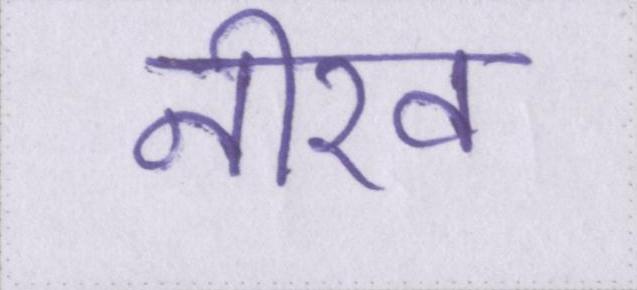 नीरव